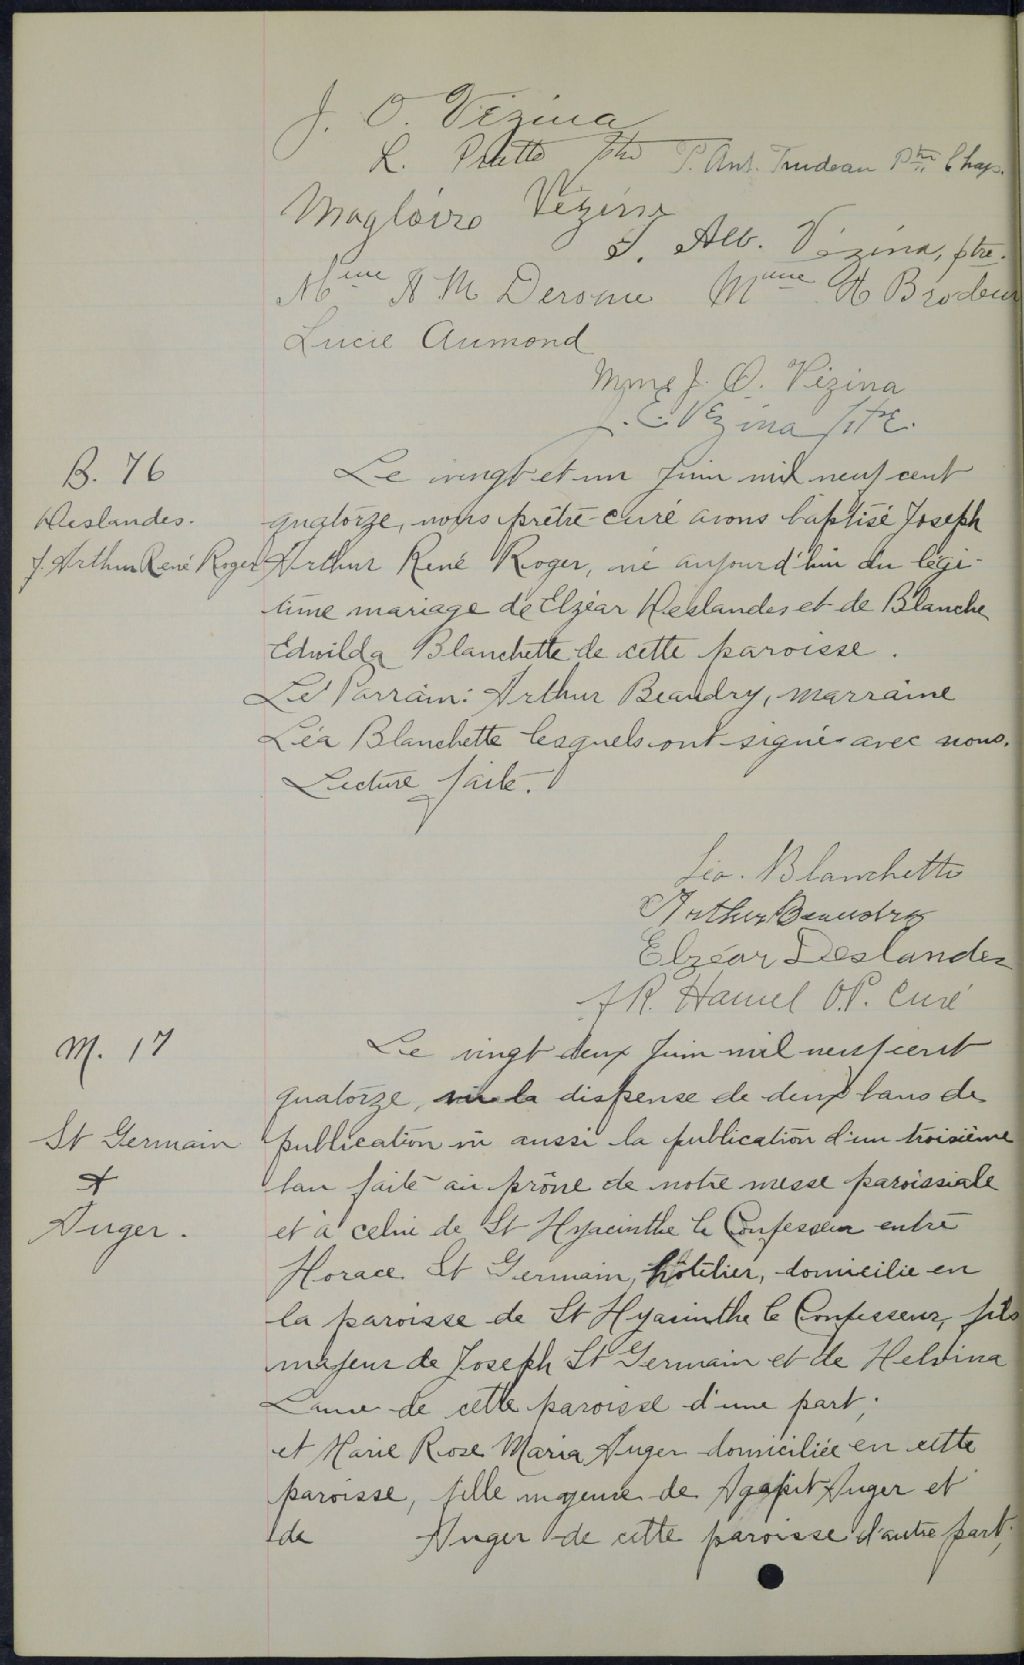 J. O. Vézina
L. Pratte ptre P. Ant. Trudeau Ptre Chap.
Magloire Vézina
S. Alb. Vézina, ptre.
Mme A M Derome Mme H Brodeur
Lucie Aumond
Mme J. O. Vézina
J. E. Vézina ptre.
B. 76
Deslandes.
J. Arthur René Roger
Le vingt et un Juin mil neuf cent
quatorze, nous prêtre-curé avons baptisé Joseph
Arthur René Roger, né aujourd'hui du légi-
time mariage de Elzéar Deslandes et de Blanche
Edwilda Blanchette de cette paroisse.
Le Parrain: Arthur Beaudry, marraine
Léa Blanchette lesquels ont signé avec nous.
Lecture faite.
Léa Blanchette
Arthur Beaudry
Elzéar Deslandes
f R. Hamel O.P. Curé
M. 17
St Germain
&
Auger.
Le vingt deux Juin mil neuf cent
quatorze, vu la dispense de deux bans de
publication vu aussi la publication d'un troisième
ban faite au prône de notre messe paroissiale
et à celui de St Hyacinthe le Confesseur entre
Horace St Germain, hôtelier, domicilié en
la paroisse de St Hyacinthe le Confesseur, fils
majeur de Joseph St Germain et de Helvina
de cette paroisse d'une part;
et Marie Rose Maria Auger domiciliée en cette
paroisse, fille majeure de Agapit Auger et
de Auger de cette paroisse d'autre part;